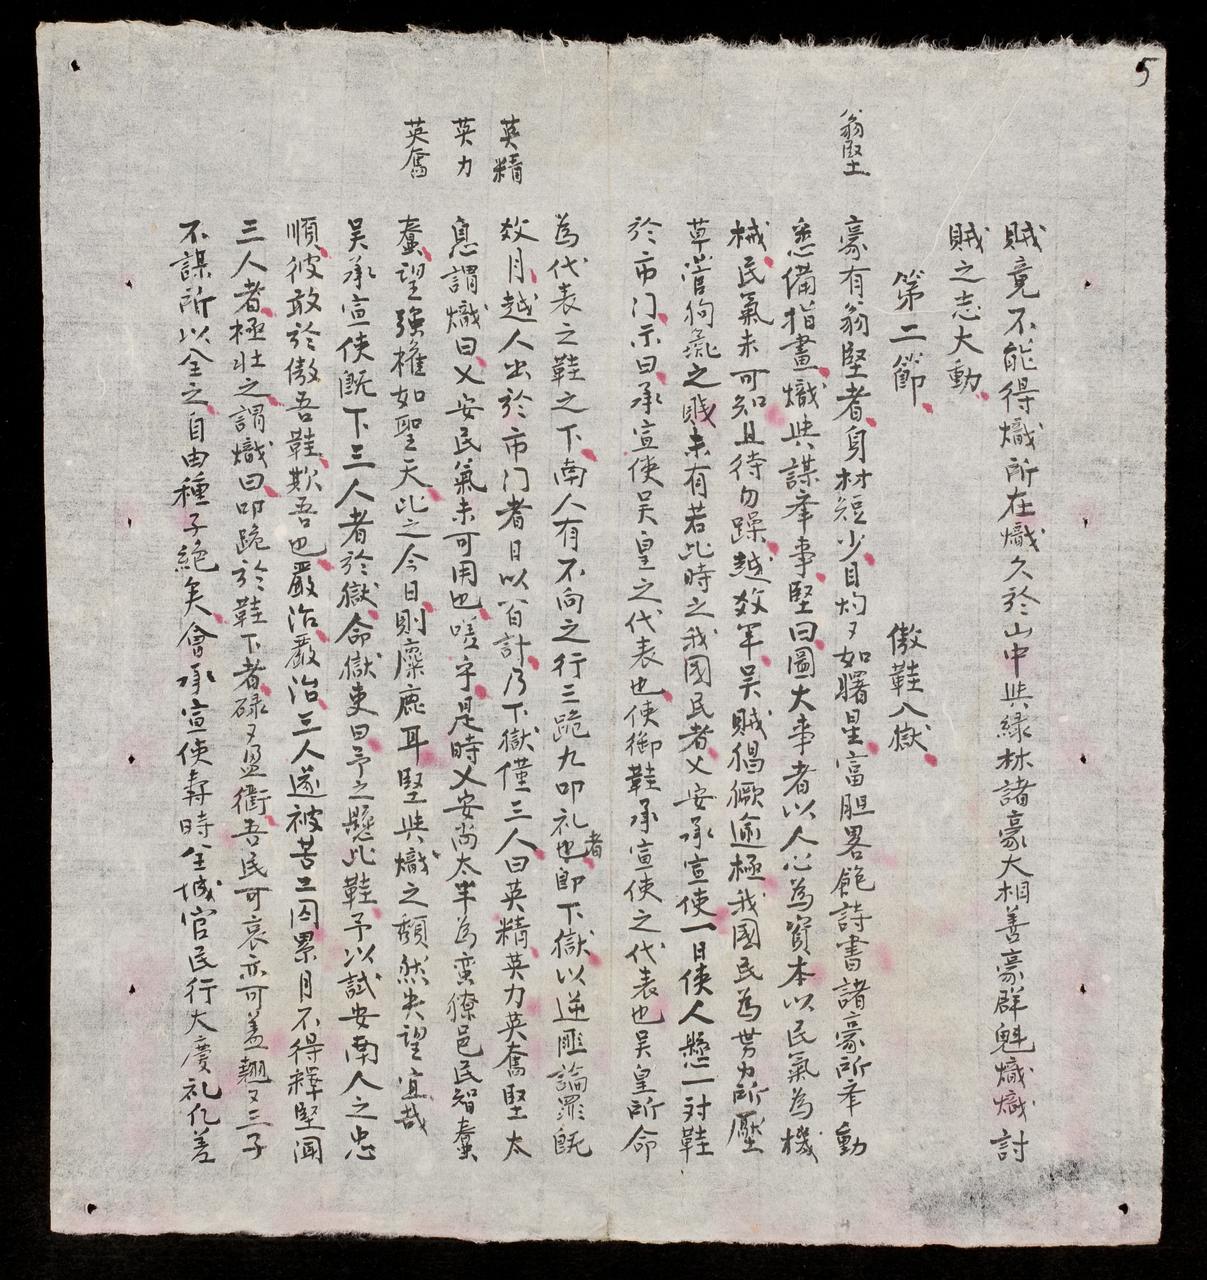 5
賊竟不能得熾所在熾久於山中與綠林諸豪大相善豪群魁熾熾討
賊之志大動
第二節　傲鞋入獄
翁堅
豪有翁堅者身材短少目灼〻如曙星富胆畧飽詩書諸豪所牽動
悉備指畫熾與謀牽事堅曰圖大事者以人心為資本以民氣為機
械民氣未可知且待勿躁越数年吴賊猖獗逾極我國民為势力所壓
草菅狗彘之賎未有若此時之我國民者乂安承宣使一日使人懸一対鞋
於市门示曰承宣使吴皇之代表也使御鞋承宣使之代表也吴皇所命
為代表之鞋之下南人有不向之行三跪九叩礼也者即下獄以逆匪論罪既
英精
数月越人出於市门者日以百計乃下獄僅三人曰英精英力英奮堅太
英力
息謂熾曰乂安民氣未可用也嗟乎是時乂安尚太半為蛮獠邑民智蠢
英奮
蠢望強權如聖天比之今日則麋鹿耳堅與熾之頽然失望宜哉
吴承宣使既下三人者於獄命獄吏曰予之懸此鞋予以試安南人之忠
順彼敢於傲吾鞋欺吾也嚴治嚴治三人遂被苦工囚累月不得釋堅聞
三人者極壮之謂熾曰叩跪於鞋下者碌〻盈衢吾民可哀亦可羞翹〻三子
不謀所以全之自由種子絶矣會承宣使壽時全城官民行大慶礼仉差